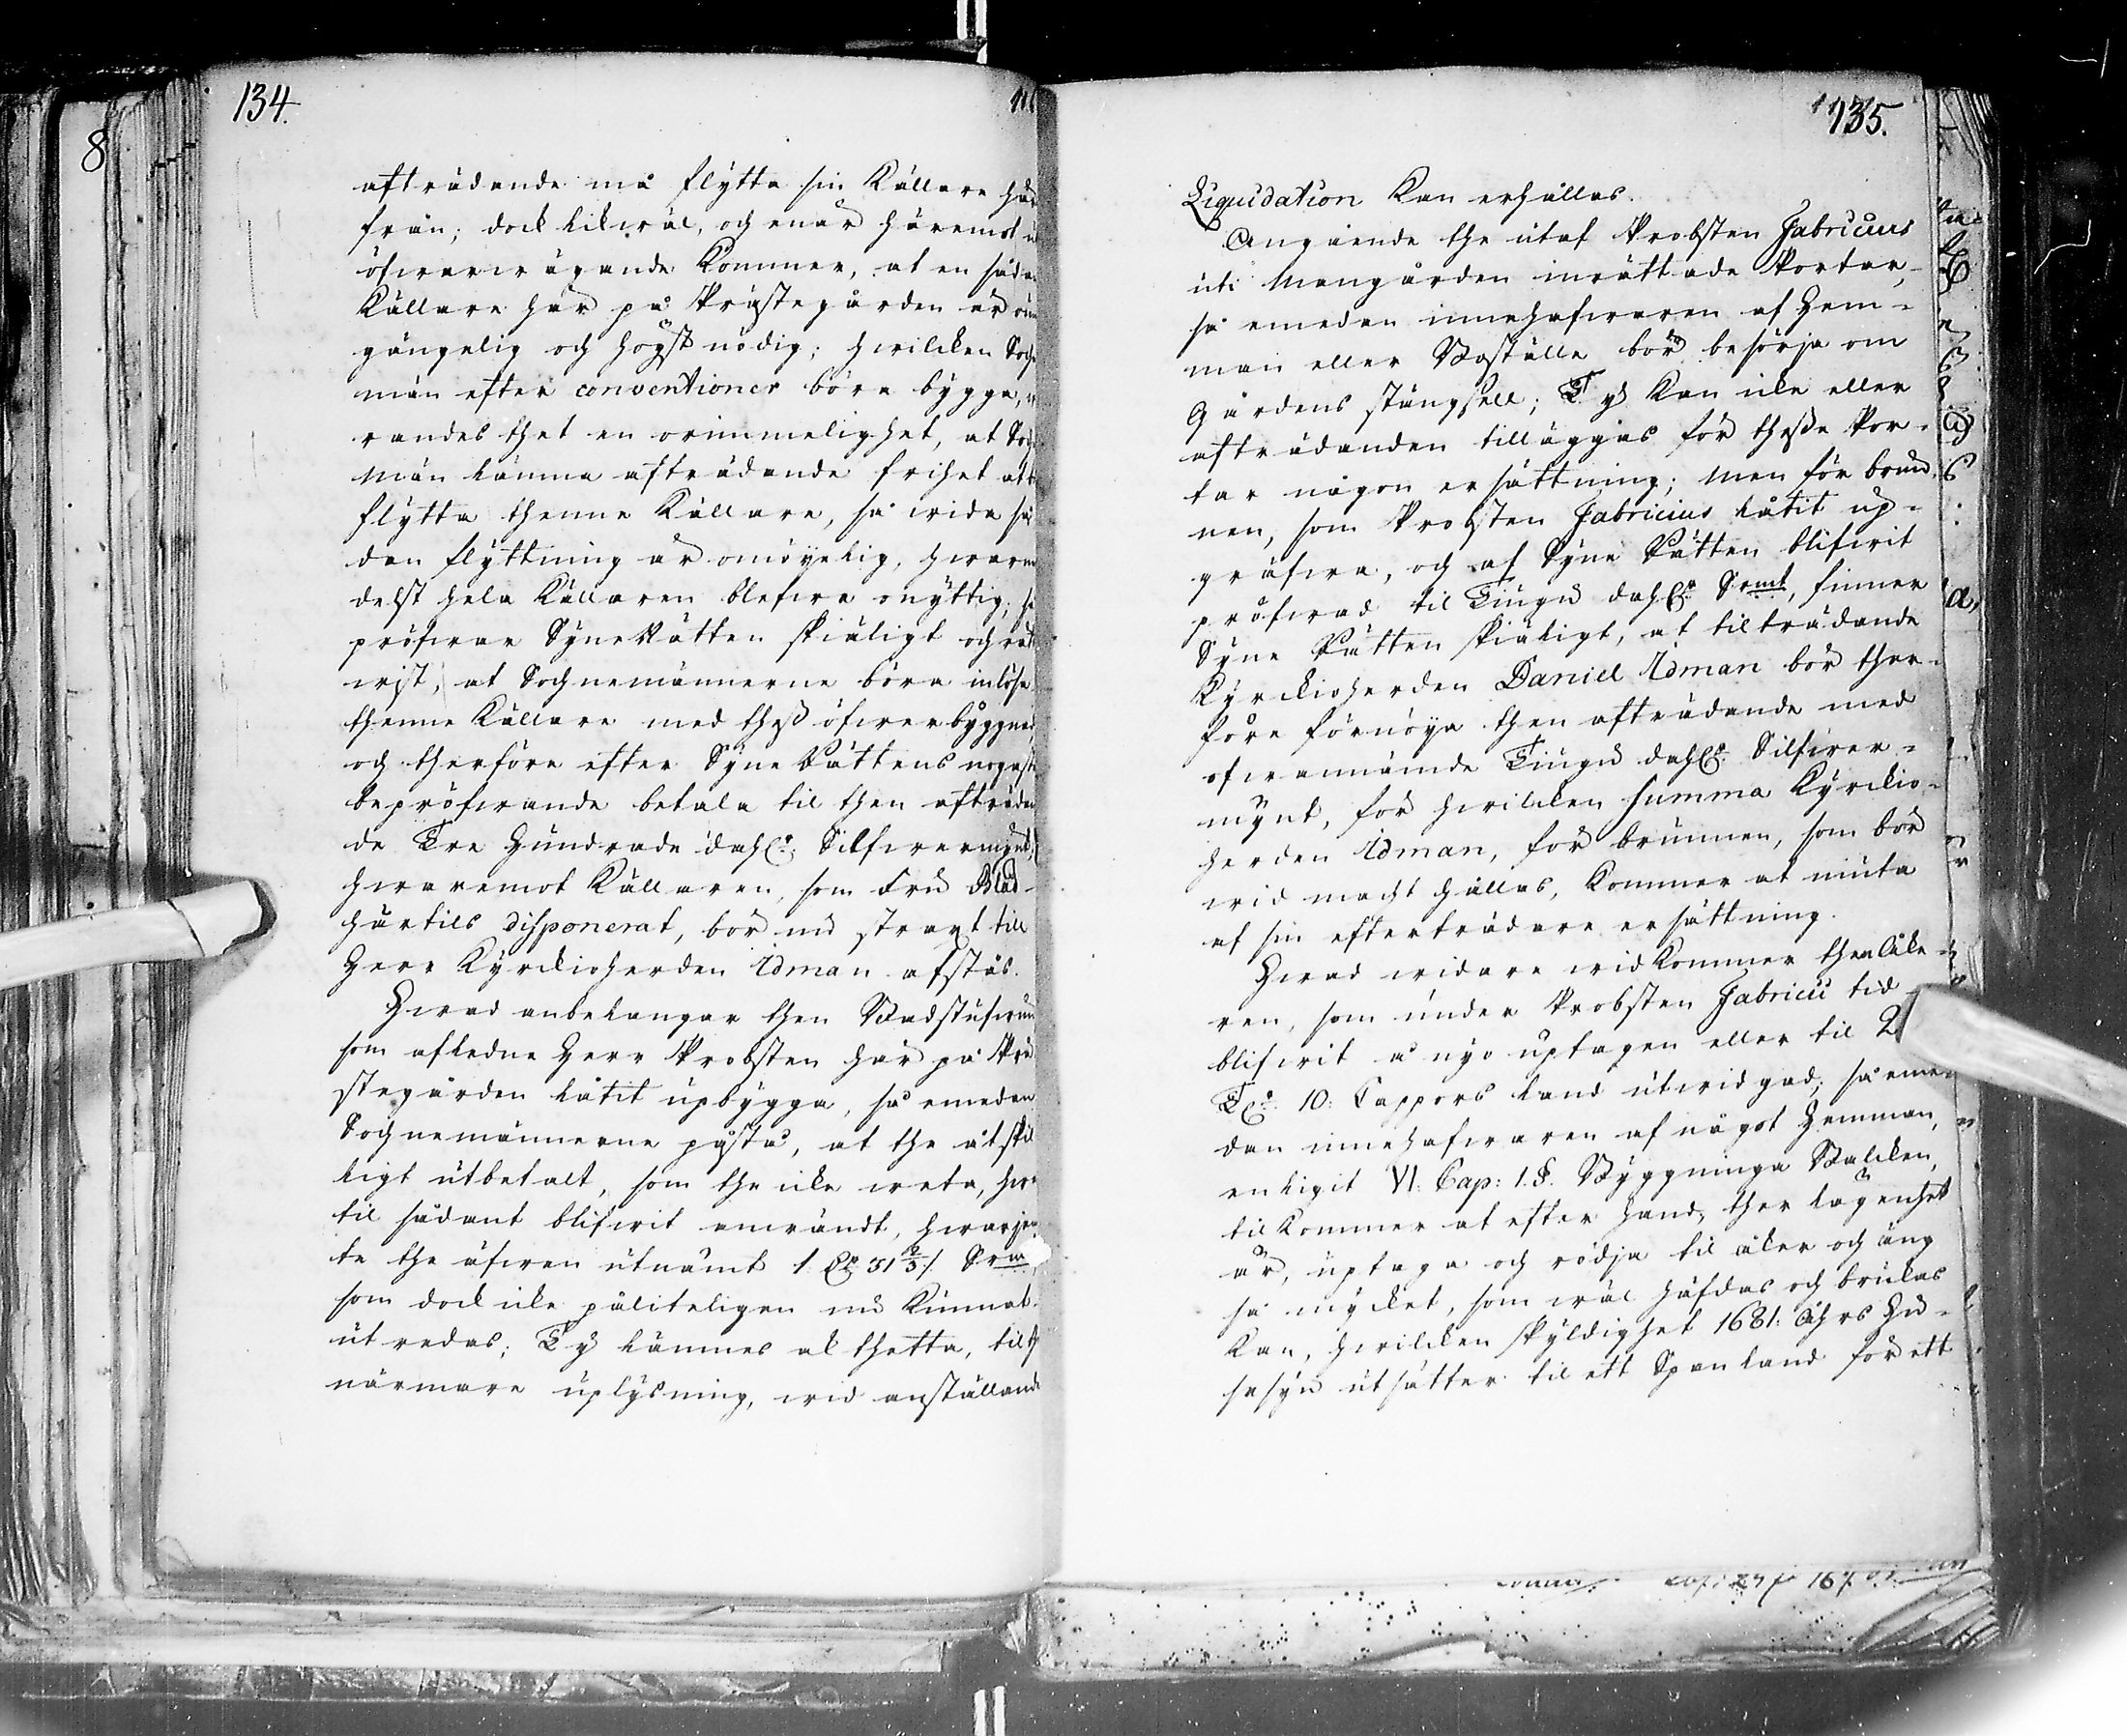 134.
afträdande må flytta sin Källare här
ifrån; dock likwäl, och enär häremot i
öfwerwägande kommer, at en sådan
Källare här på Prästegården är
gängelig och högst nödig; hwilcken Sochn
män efter conventioner böra bygga,
randes thet en orimmelighet, at Sochn
män lämna afträdande frihet att
flytta thenne Källare, så wida så
dan flyttning är omöyelig, hwarme
delst hela Källaren blefwe onyttig; så
pröfwar SyneRätten skiäligt och rätt
wist, at Sochnemännerne böra inlösa
thenne Källare med thess öfwerbyggnad
och therföre efter SyneRättens nogaste
bepröfwande betala til then afträdan
de Tre Hundrade dahlr Silfwermynt,
hwaremot Källaren, som Fru
härtils disponerat, bör nu straxt till
Herr Kyrckioherden Idman afstås.
Hwad anbelangar then Badstufwun
som afledne Herr Probsten här på Prä
stegården låtit upbygga, så emedan
Sochnemännerne påstå, at the åtskil
ligt utbetalt, som the icke weta, hwar
til sådant blifwit anwändt, hwarjem
te the äfwen utnämt 1 31 2/5 Srm
som dock icke påliteligen nu kunnat
utredas; Ty lämnes al thetta, til
närmare uplysning, wid anställande
135.
Liquidation kan erhållas.
Angående the utaf Probsten Fabricius
uti Mangården inrättade Portar,
så emedan innehafwaren af Hem-
man eller Boställe bör besörja om
Gårdens stängsell; Ty kan icke eller
afträdanden tilläggas för thesse Por-
tar någon ersättning; men för brun-
nen, som Probsten Fabricius låtit up-
gräfwa, och af Syne Rätten blifwit
pröfwad til Tiugu dahlr Srmt, finner
Syne Rätten skiäligt, at tilträdande
Kyrckioherden Daniel Idman bör ther-
före förnöya then afträdande med
ofwannämde Tiugu dahlr Silfwer-
mynt, för hwilcken summa Kyrckio-
herden Idman, för brunnen, som bör
wid macht hållas, kommer at niuta
af sin efterträdare ersättning.
Hwad widare widkommer then åke-
ren, som under Probsten Fabricii tid
blifwit å nyo uptagen eller til 2
Tr 10: Kappors land utwidgad; så eme-
dan innehafwaren af något Hemman,
enligit VI: Cap: 1. §. Byggninga Balcken,
tilkommer at efter hand, ther lägenhet
är, uptaga och rödja til åker och äng
så mycket, som wäl häfdas och brukas
kan, hwilcken skyldighet 1681: Åhrs Hu-
sesyn utsätter til ett Spanland för ett